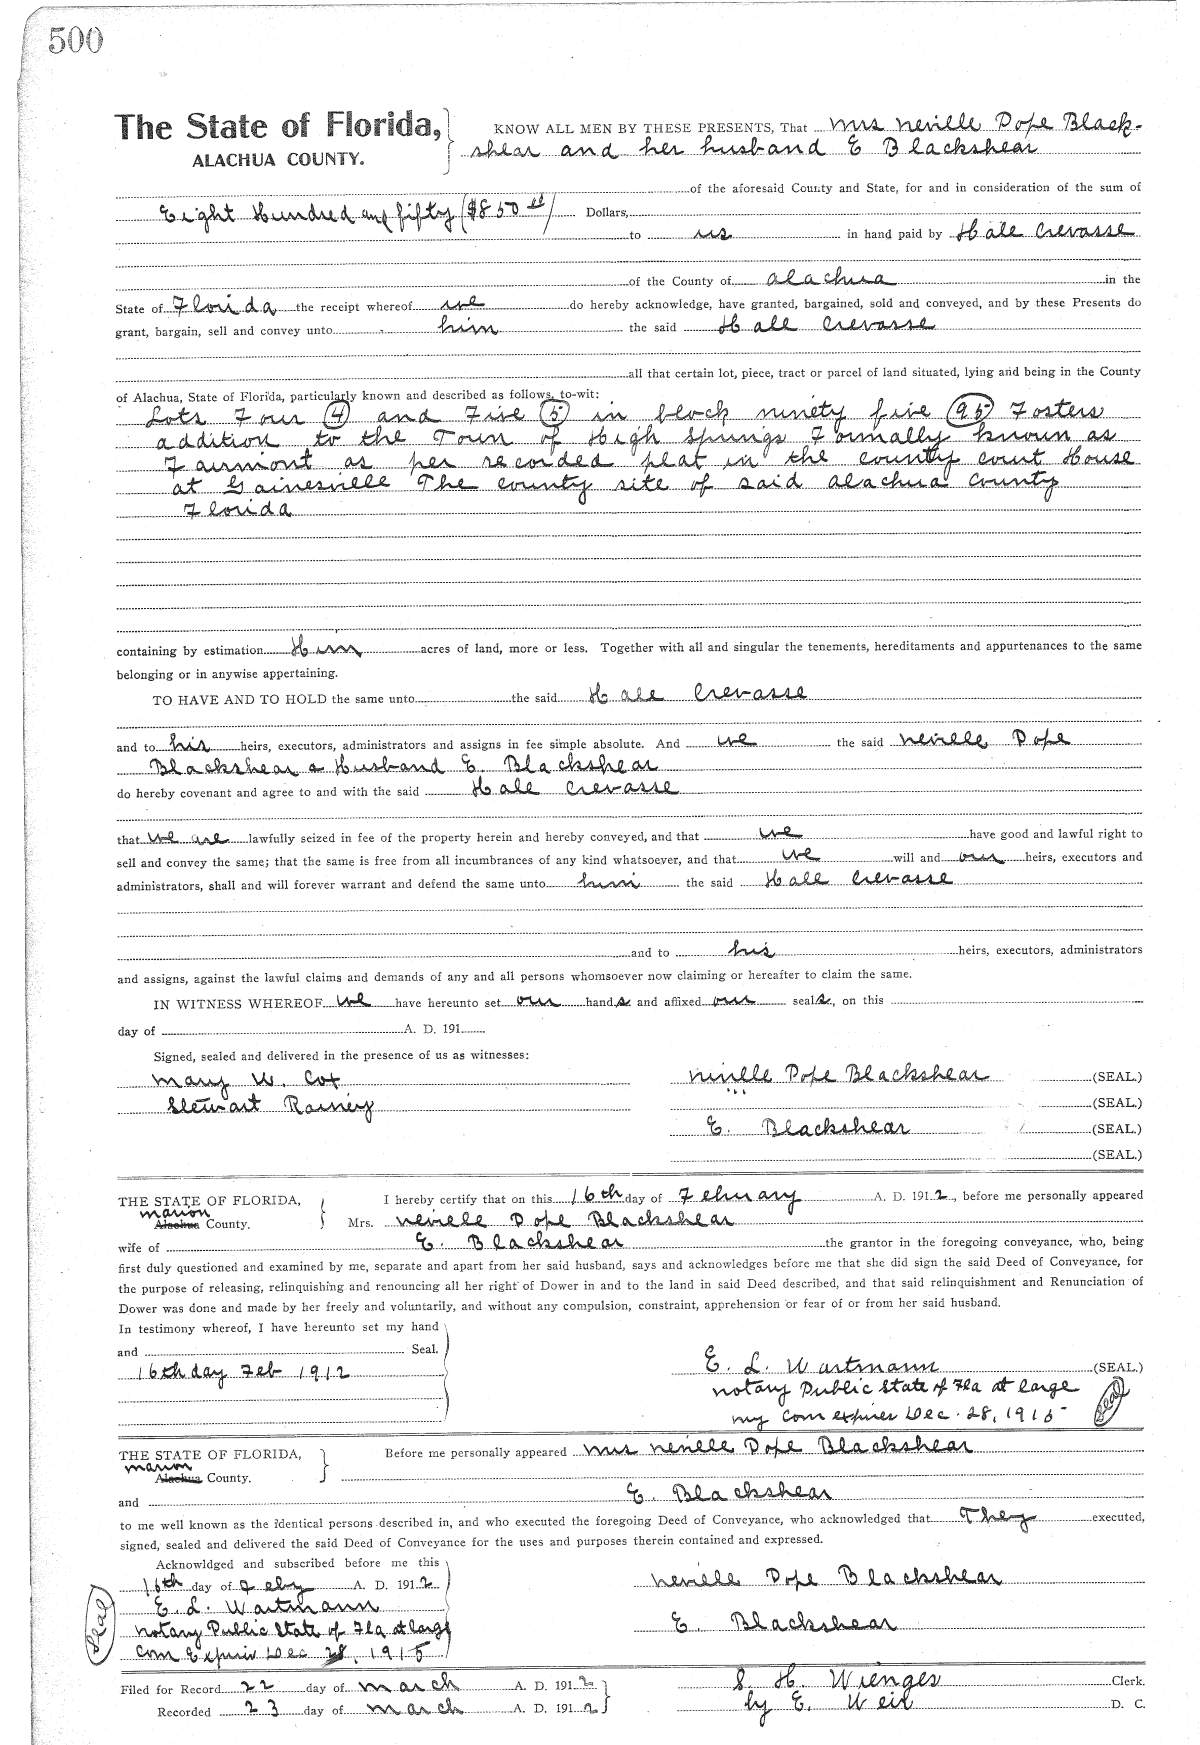 500
The State of Florida, KNOW ALL MEN BY THESE PRESENTS, That Mrs Neville Pope Black-
ALACHUA COUNTY. shear and her husband E Blackshear
of the aforesaid County and State, for and in consideration of the sum of
Eight Hundred and fifty ($850 Dollars,
to us in hand paid by Hale Crevasse
of the County of Alachua in the
State of Florida the receipt whereof we do hereby acknowledge, have granted, bargained, sold and conveyed, and by these Presents do
grant, bargain, sell and convey unto him the said Hale Crevasse
all that certain lot, piece, tract or parcel of land situated, lying and being in the County
of Alachua, State of Florida, particularly known and described as follows, to-wit:
Lots Four (4) and Five (5) in block ninety five (95) Fosters
addition to the Town of High Springs Formally known as
Fairmont as per recorded plat in the county court House
at Gainesville The county site of said Alachua County
Florida
containing by estimation acres of land, more or less. Together with all and singular the tenements, hereditaments and appurtenances to the same
belonging or in anywise appertaining.
TO HAVE AND TO HOLD the same unto the said Hale Crevasse
and to his heirs, executors, administrators and assigns in fee simple absolute. And we the said Neville Pope
Blackshear & Husband E. Blackshear
do hereby covenant and agree to and with the said Hale Crevasse
that we are lawfully seized in fee of the property herein and hereby conveyed, and that we have good and lawful right to
sell and convey the same; that the same is free from all incumbrances of any kind whatsoever, and that we will and our heirs, executors and
administrators, shall and will forever warrant and defend the same unto him the said Hale Crevasse
and to his heirs, executors, administrators
and assigns, against the lawful claims and demands of any and all persons whomsoever now claiming or hereafter to claim the same.
IN WITNESS WHEREOF we have hereunto set our hands and affixed our seals, on this
day of A. D. 191
Signed, sealed and delivered in the presence of us as witnesses:
Mary W. Cox Neville Pope Blackshear (SEAL.)
Stewart Ramey (SEAL.)
E. Blackshear (SEAL.)
(SEAL.)
THE STATE OF FLORIDA, I hereby certify that on this 16th day of February A. D. 1912, before me personally appeared
Marion
Alachua County. Mrs. Neville Pope Blackshear
wife of E. Blackshear the grantor in the foregoing conveyance, who, being
first duly questioned and examined by me, separate and apart from her said husband, says and acknowledges before me that she did sign the said Deed of Conveyance, for
the purpose of releasing, relinquishing and renouncing all her right of Dower in and to the land in said Deed described, and that said relinquishment and Renunciation of
Dower was done and made by her freely and voluntarily, and without any compulsion, constraint, apprehension or fear of or from her said husband.
In testimony whereof, I have hereunto set my hand
and Seal.
16th day Feb 1912 E. L. Wartmann (SEAL.)
Notary Public State of Fla at large
my Com expires Dec. 28, 1915 Seal
THE STATE OF FLORIDA, Before me personally appeared Mrs Neville Pope Blackshear
Marion
Alachua County.
and E. Blackshear
to me well known as the identical persons described in, and who executed the foregoing Deed of Conveyance, who acknowledged that They executed,
signed, sealed and delivered the said Deed of Conveyance for the uses and purposes therein contained and expressed.
Acknowldged and subscribed before me this
16th day of Feby A. D. 1912 Neville Pope Blackshear
E. L. Wartmann
Seal Notary Public State of Fla at large E. Blackshear
Com Expires Dec 28, 1915
Filed for Record 22 day of March A. D. 1912 S. H. Wienges Clerk.
Recorded 23 day of March A. D. 1912 by E. Weil D. C.